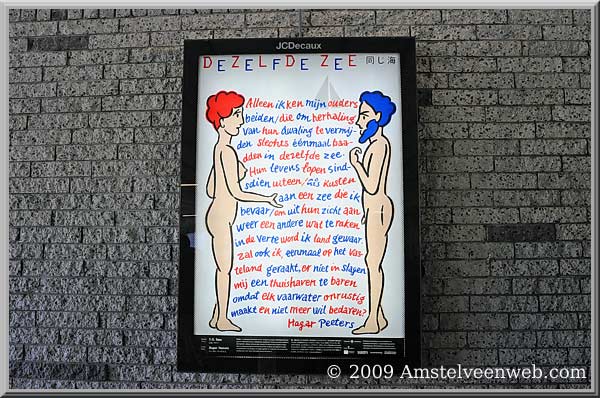 JCDecaux
DEZELFDE ZEE 同じ海
Alleen ik ken mijn ouders
beiden / die om herhaling
van hun dwaling te vermij-
den slechts éénmaal baa-
dden in dezelfde zee.
Hun levens lopen sinds-
dien uiteen / als kusten
aan een zee die ik
bevaar / om uit hun zicht aan
weer een andere wal te raken
in de verte word ik land gewaar.
Zal ook ik, eenmaal op het vas-
teland geraakt, er niet in slagen
mij een thuishaven te baren
omdat elk vaarwater onrustig
maakt en niet meer wil bedaren?
Hagar Peeters
© 2009 Amstelveenweb.com